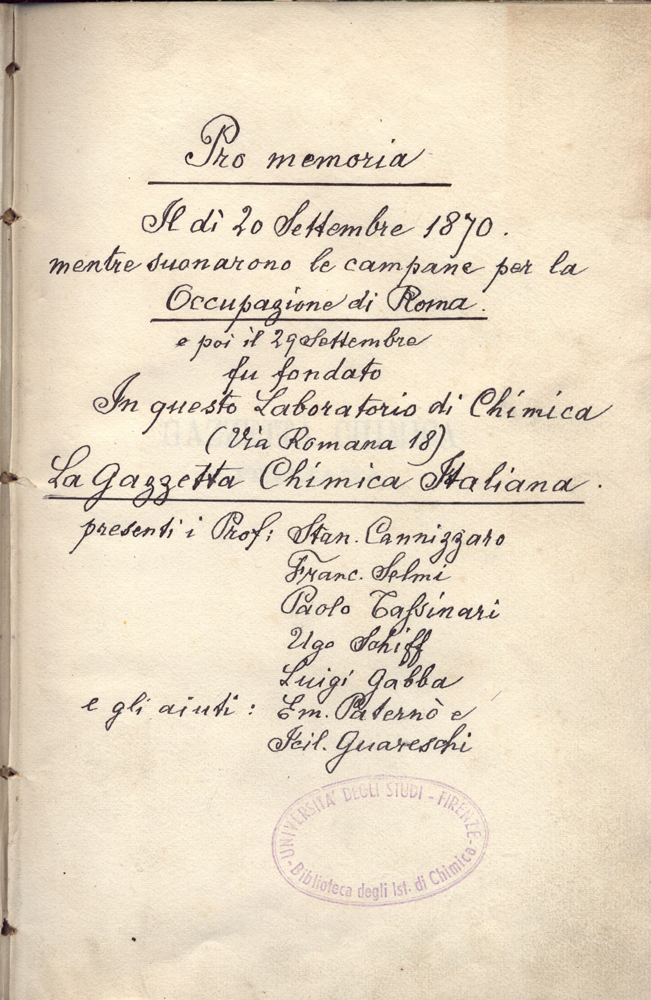 Pro memoria
Il dì 20 Settembre 1870.
mentre suonarono le campane per la
Occupazione di Roma.
e poi il 29 Settembre
fu fondato
In questo Laboratorio di Chimica
(Via Romana 18)
La Gazzetta Chimica Italiana.
presenti i Prof: Stan. Cannizzaro
Franc. Selmi
Paolo Tassinari
Ugo Schiff
Luigi Gabba
e gli aiuti: Em. Paternò e
Icil. Guareschi
UNIVERSITA' DEGLI STUDI - FIRENZE
- Biblioteca degli Ist. di Chimica -